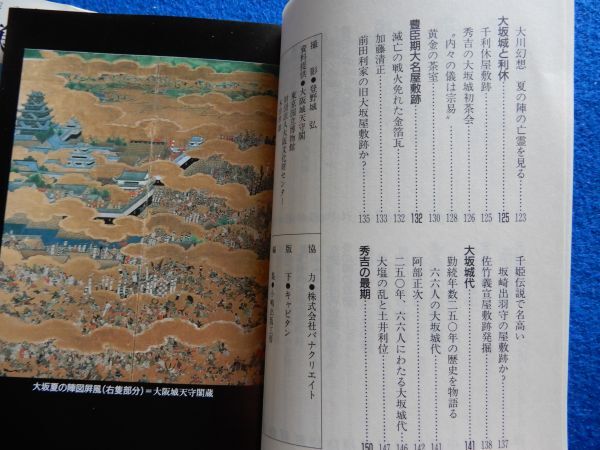 大川幻想 夏の陣の亡霊を見る……123
大坂城と利休……125
千利休屋敷跡……125
秀吉の大坂城初茶会……126
"内々の儀は宗易"……128
黄金の茶室……130
豊臣期大名屋敷跡……132
滅亡の戦火免れた金箔瓦……132
加藤清正……133
前田利家の旧大坂屋敷跡か?……135
千姫伝説で名高い
坂崎出羽守の屋敷跡か?……137
佐竹義宣屋敷跡発掘……138
大坂城代……141
勤続年数二五〇年の歴史を物語る
六六人の大坂城代……141
阿部正次……142
二五〇年、六六人にわたる大坂城代……146
大塩の乱と土井利位……147
秀吉の最期……150
撮影●登野城 弘
資料提供●大阪城天守閣
東京国立博物館
協力●株式会社パナクリエイト
版下●キャビタン
大坂夏の陣図屏風(右隻部分)=大阪城天守閣蔵